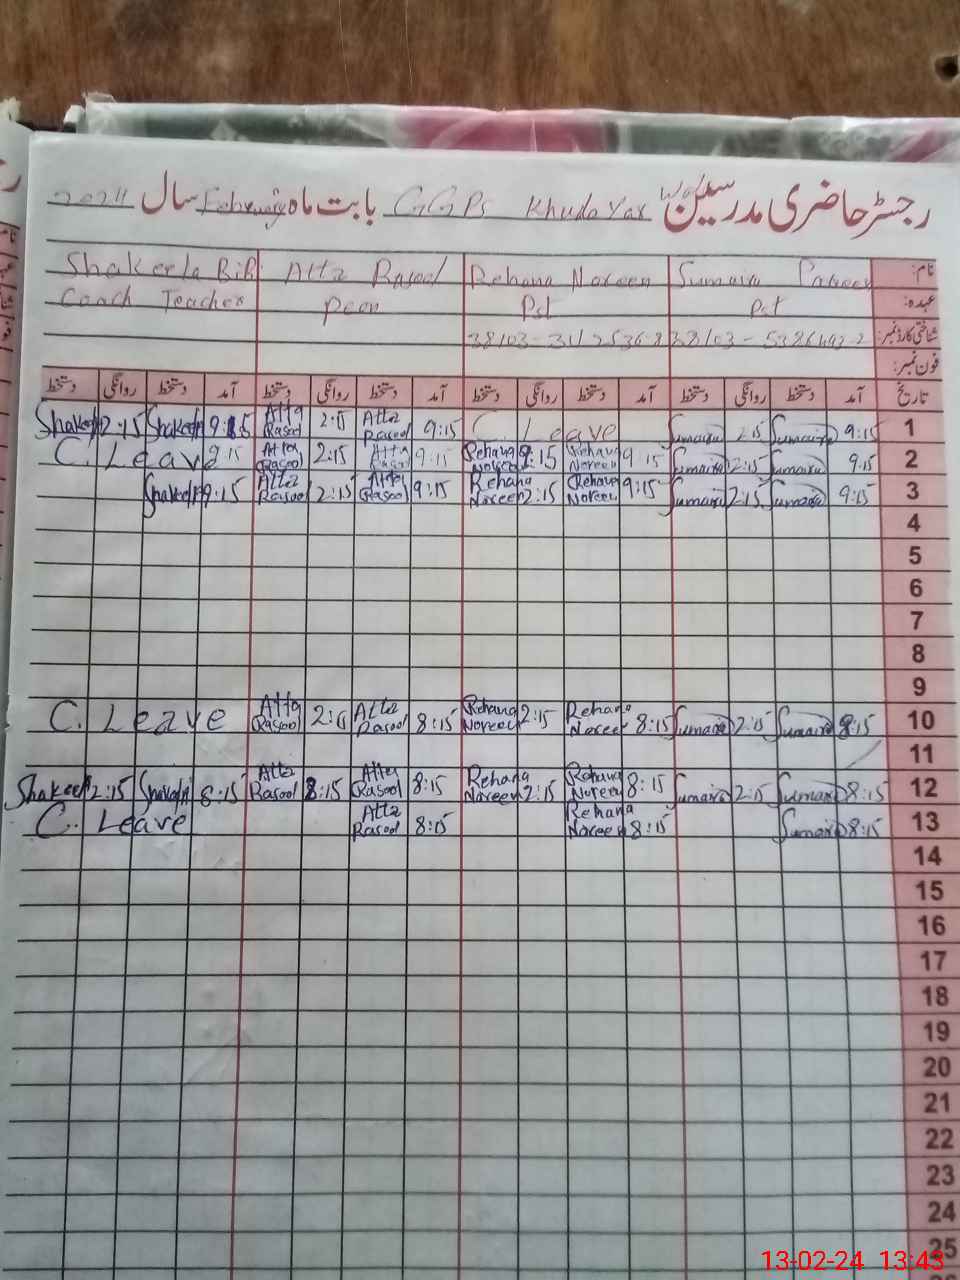 رجسٹر حاضری مدرسین GGPS Khuda Yar بابت ماہ February سال 2024
نام: Sumaira Parveen Rehana Noreen Atta Rasool Shakeela Bibi
عہدہ: Pst Pst Peon Coach Teacher
شناختی کارڈ نمبر:
فون نمبر:
تاریخ آمد دستخط روانگی دستخط آمد دستخط روانگی دستخط آمد دستخط روانگی دستخط آمد دستخط روانگی دستخط
1 9:15 Sumaira 2:15 Sumaira C. Leave 9:15 Atta Rasool 2:15 Atta Rasool 9:15 Shakeela 2:15 Shakeela
2 9:15 Sumaira 2:15 Sumaira 9:15 Rehana Noreen 2:15 Rehana Noreen 9:15 Atta Rasool 2:15 Atta Rasool C. Leave
3 9:15 Sumaira 2:15 Sumaira 9:15 Rehana Noreen 2:15 Rehana Noreen 9:15 Atta Rasool 2:15 Atta Rasool 9:15 Shakeela
4
5
6
7
8
9
10 8:15 Sumaira 2:15 Sumaira 8:15 Rehana Noreen 2:15 Rehana Noreen 8:15 Atta Rasool Atta Rasool C. Leave
11
12 8:15 Sumaira 2:15 Sumaira 8:15 Rehana Noreen 2:15 Rehana Noreen 8:15 Atta Rasool 8:15 Atta Rasool 8:15 Shakeela 2:15 Shakeela
13 8:15 Sumaira 8:15 Rehana Noreen 8:15 Atta Rasool C. Leave
14
15
16
17
18
19
20
21
22
23
24
25
13-02-24 13:43